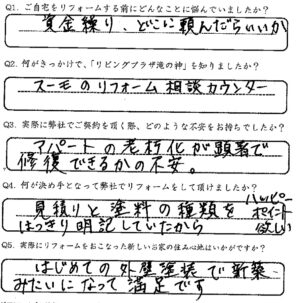 Q1. ご自宅をリフォームする前にどんなことに悩んでいましたか?
資金繰り、どこに頼んだらいいか
Q2. 何がきっかけで、「リビングプラザ滝の神」を知りましたか?
スーモのリフォーム相談カウンター
Q3. 実際に弊社でご契約を頂く際、どのような不安をお持ちでしたか?
アパートの老朽化が顕著で
修復できるかの不安。
Q4. 何が決め手となって弊社でリフォームをして頂けましたか?
見積りと塗料の種類を
はっきり明記していたから
ハッピー
ポイント
欲しい
Q5. 実際にリフォームをおこなった新しいお家の住み心地はいかがですか?
はじめての外壁塗装で新築
みたいになって満足です